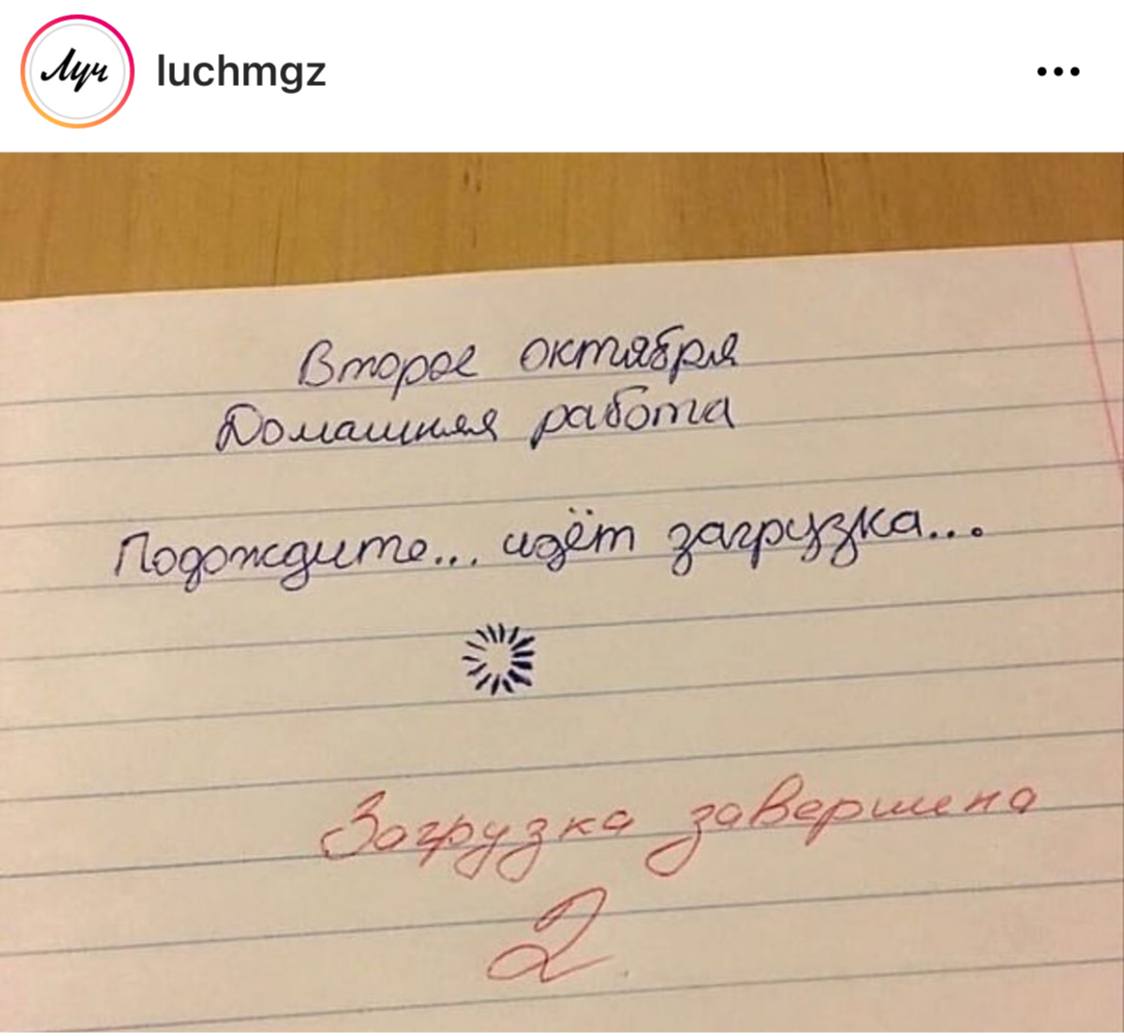 Луч luchmgz
Второе октября
Домашняя работа
Подождите... идёт загрузка...
Загрузка завершена
2